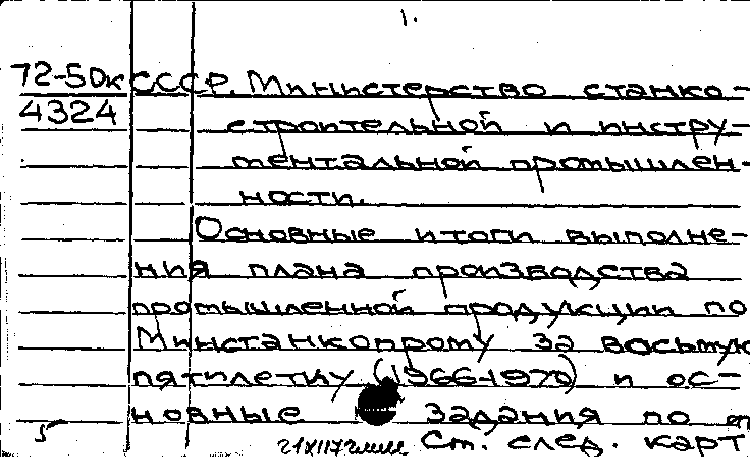 1.
72-50к СССР. Министерство станко-
4324 строительной и инстру-
ментальной промышлен-
ности.
Основные итоги выполне-
ния плана производства
промышленной продукции по
Минстанкопрому за восьмую
пятилетку (1966-1970) и ос-
новные задания по
5 См. след. карт